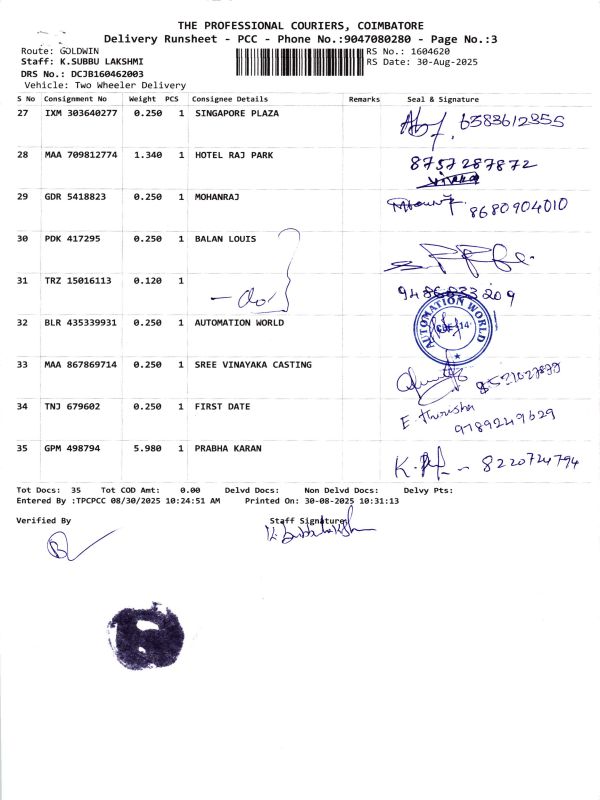 THE PROFESSIONAL COURIERS, COIMBATORE
Delivery Runsheet - PCC - Phone No.:9047080280 - Page No.:3
Route: GOLDWIN RS No.: 1604620
Staff: K.SUBBU LAKSHMI RS Date: 30-Aug-2025
DRS No.: DCJB160462003
Vehicle: Two Wheeler Delivery
S No Consignment No Weight PCS Consignee Details Remarks Seal & Signature
27 IXM 303640277 0.250 1 SINGAPORE PLAZA 6383612355
28 MAA 709812774 1.340 1 HOTEL RAJ PARK 8757287872
29 GDR 5418823 0.250 1 MOHANRAJ 8680904010
30 PDK 417295 0.250 1 BALAN LOUIS
31 TRZ 15016113 0.120 1 - do
32 BLR 435339931 0.250 1 AUTOMATION WORLD AUTOMATION WORLD
33 MAA 867869714 0.250 1 SREE VINAYAKA CASTING
34 TNJ 679602 0.250 1 FIRST DATE E. Thurisha
9789249629
35 GPM 498794 5.980 1 PRABHA KARAN 8220724794
Tot Docs: 35 Tot COD Amt: 0.00 Delvd Docs: Non Delvd Docs: Delvy Pts:
Entered By :TPCPCC 08/30/2025 10:24:51 AM Printed On: 30-08-2025 10:31:13
Verified By Staff Signature
K. Subbulakshmi